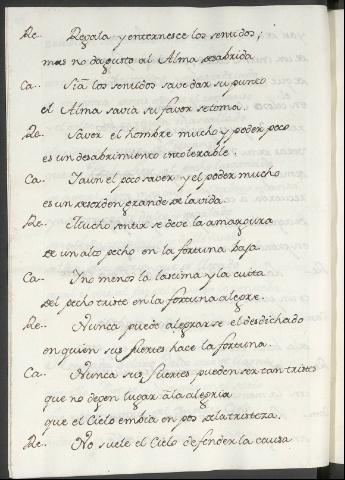 Re.. Regala y enternesce los sentidos;
mas no da gusto al Alma desabrida
Ca.. Si a los sentidos save dar su punto
el Alma savia su favor se toma.
Re. Saver el hombre mucho y poder poco
es un desabrimiento intolerable.
Ca.. I aun el poco saver y el poder mucho
es un desorden grande de la vida.
Re. Mucho sentir se deve la amargura
de un alto pecho en la fortuna baja
Ca. I no menos la lastima y la cuita
del pecho triste en la fortuna alegre.
Re.. Nunca puede alegrarse el desdichado
en quien sus fuertes hace la fortuna.
Ca.. Nunca sus fuertes pueden ser tan tristes
que no depen lugar a la alegria
que el Cielo embia en pos de la tristeza.
Re. No suele el Cielo defender la causa